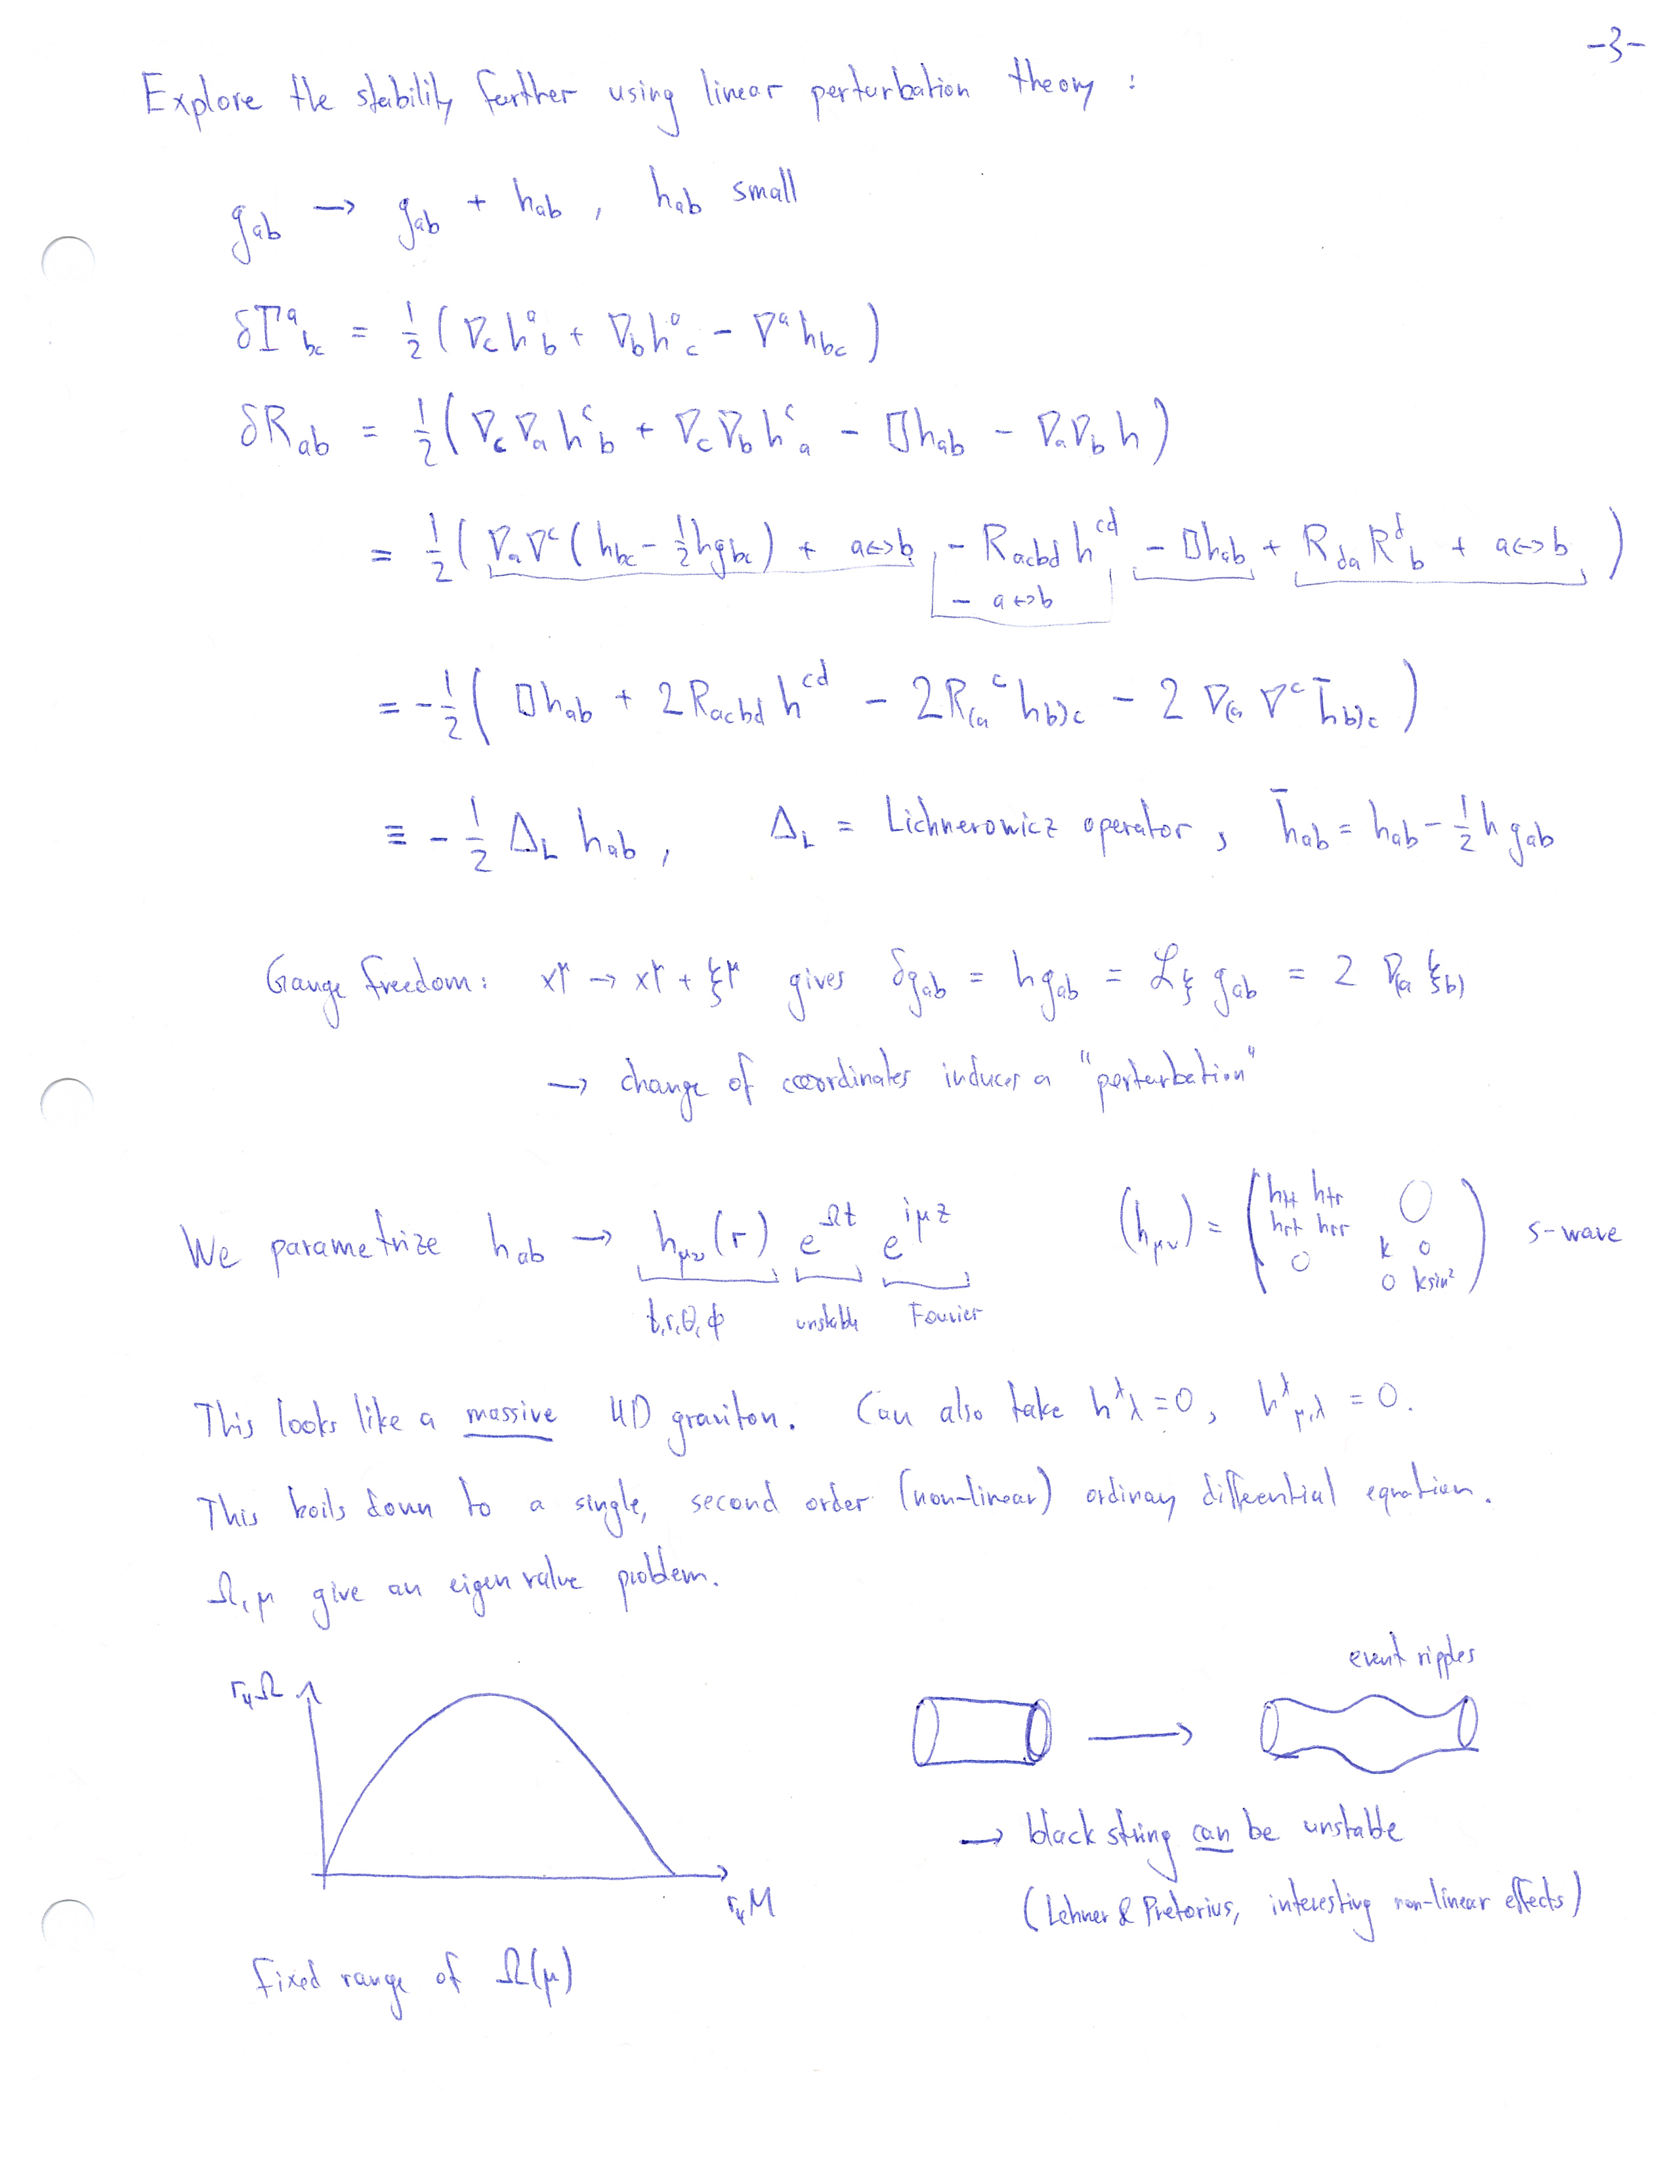 -3-
Explore the stability further using linear perturbation theory :
g_ab → g_ab + h_ab , h_ab small
δΓ^a_bc = 1/2 ( ∇_c h^a_b + ∇_b h^a_c - ∇^a h_bc )
δR_ab = 1/2 ( ∇_c ∇_a h^c_b + ∇_c ∇_b h^c_a - □h_ab - ∇_a ∇_b h )
= 1/2 ( ∇_a ∇^c ( h_bc - 1/2 h g_bc ) + a↔b - R_acbd h^cd - □h_ab + R_da R^d_b + a↔b )
- a↔b
= -1/2 ( □h_ab + 2 R_acbd h^cd - 2 R_(a^c h_b)c - 2 ∇_(a ∇^c h̄_b)c )
≡ -1/2 Δ_L h_ab , Δ_L = Lichnerowicz operator , h̄_ab = h_ab - 1/2 h g_ab
Gauge freedom : x^μ → x^μ + ξ^μ gives δg_ab = hg_ab = ℒ_ξ g_ab = 2 ∇_(a ξ_b)
→ change of coordinates induces a "perturbation"
We parametrize h_ab → h_μν (r) e^Ωt e^iμz (h_μν) = ( h_tt h_tr 0 h_rt h_rr 0 k 0 0 k sin² ) s-wave
t,r,θ,φ unstable Fourier
This looks like a massive 4D graviton. Can also take h^λ_λ = 0 , h^λ_μ,λ = 0.
This boils down to a single, second order (non-linear) ordinary differential equation.
Ω, μ give an eigenvalue problem.
event ripples
r_4 Ω
→ black string can be unstable
r_4 M
(Lehner & Pretorius, interesting non-linear effects)
fixed range of Ω(μ)